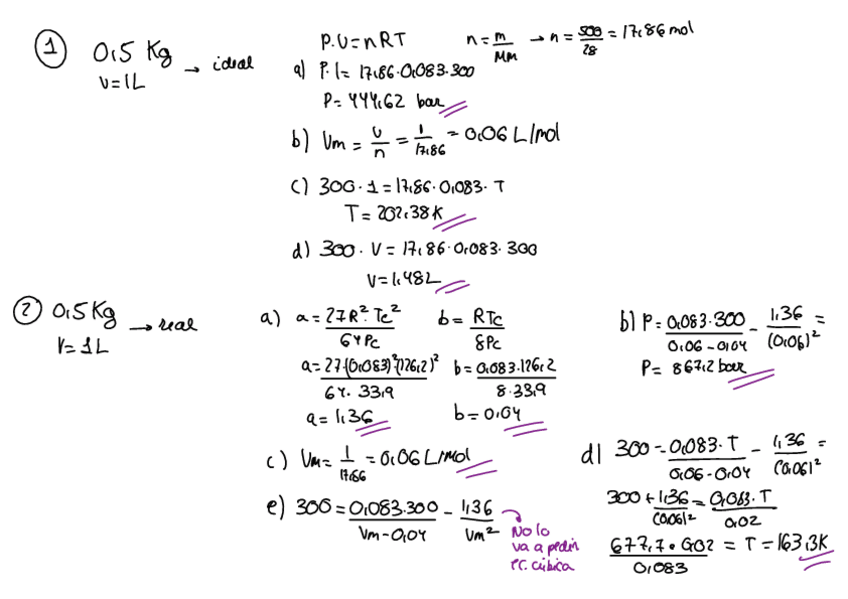 ① 0,5 Kg → ideal
V=1L
P.V=nRT   n=m/MM → n=500/28=17,86 mol
a) P.1=17,86.0,083.300
P=444,62 bar
b) Vm=V/n=1/17,86=0,06 L/mol
c) 300.1=17,86.0,083.T
T=202,38K
d) 300.V=17,86.0,083.300
V=1,48L
② 0,5 Kg → real
V=1L
a) a=27R².Tc²/64Pc   b=RTc/8Pc
a=27.(0,083)²(126,2)²/64.33,9   b=0,083.126,2/8.33,9
a=1,36   b=0,04
b) P=0,083.300/0,06-0,04 - 1,36/(0,06)² =
P=867,2 bar
c) Vm=1/17,86=0,06 L/mol
d) 300=0,083.T/0,06-0,04 - 1,36/(0,06)² =
300+1,36/(0,06)²=0,083.T/0,02
677,7.0,02/0,083=T=163,3K
e) 300=0,083.300/Vm-0,04 - 1,36/Vm²
→ No lo
va a pedir
EC. cúbica